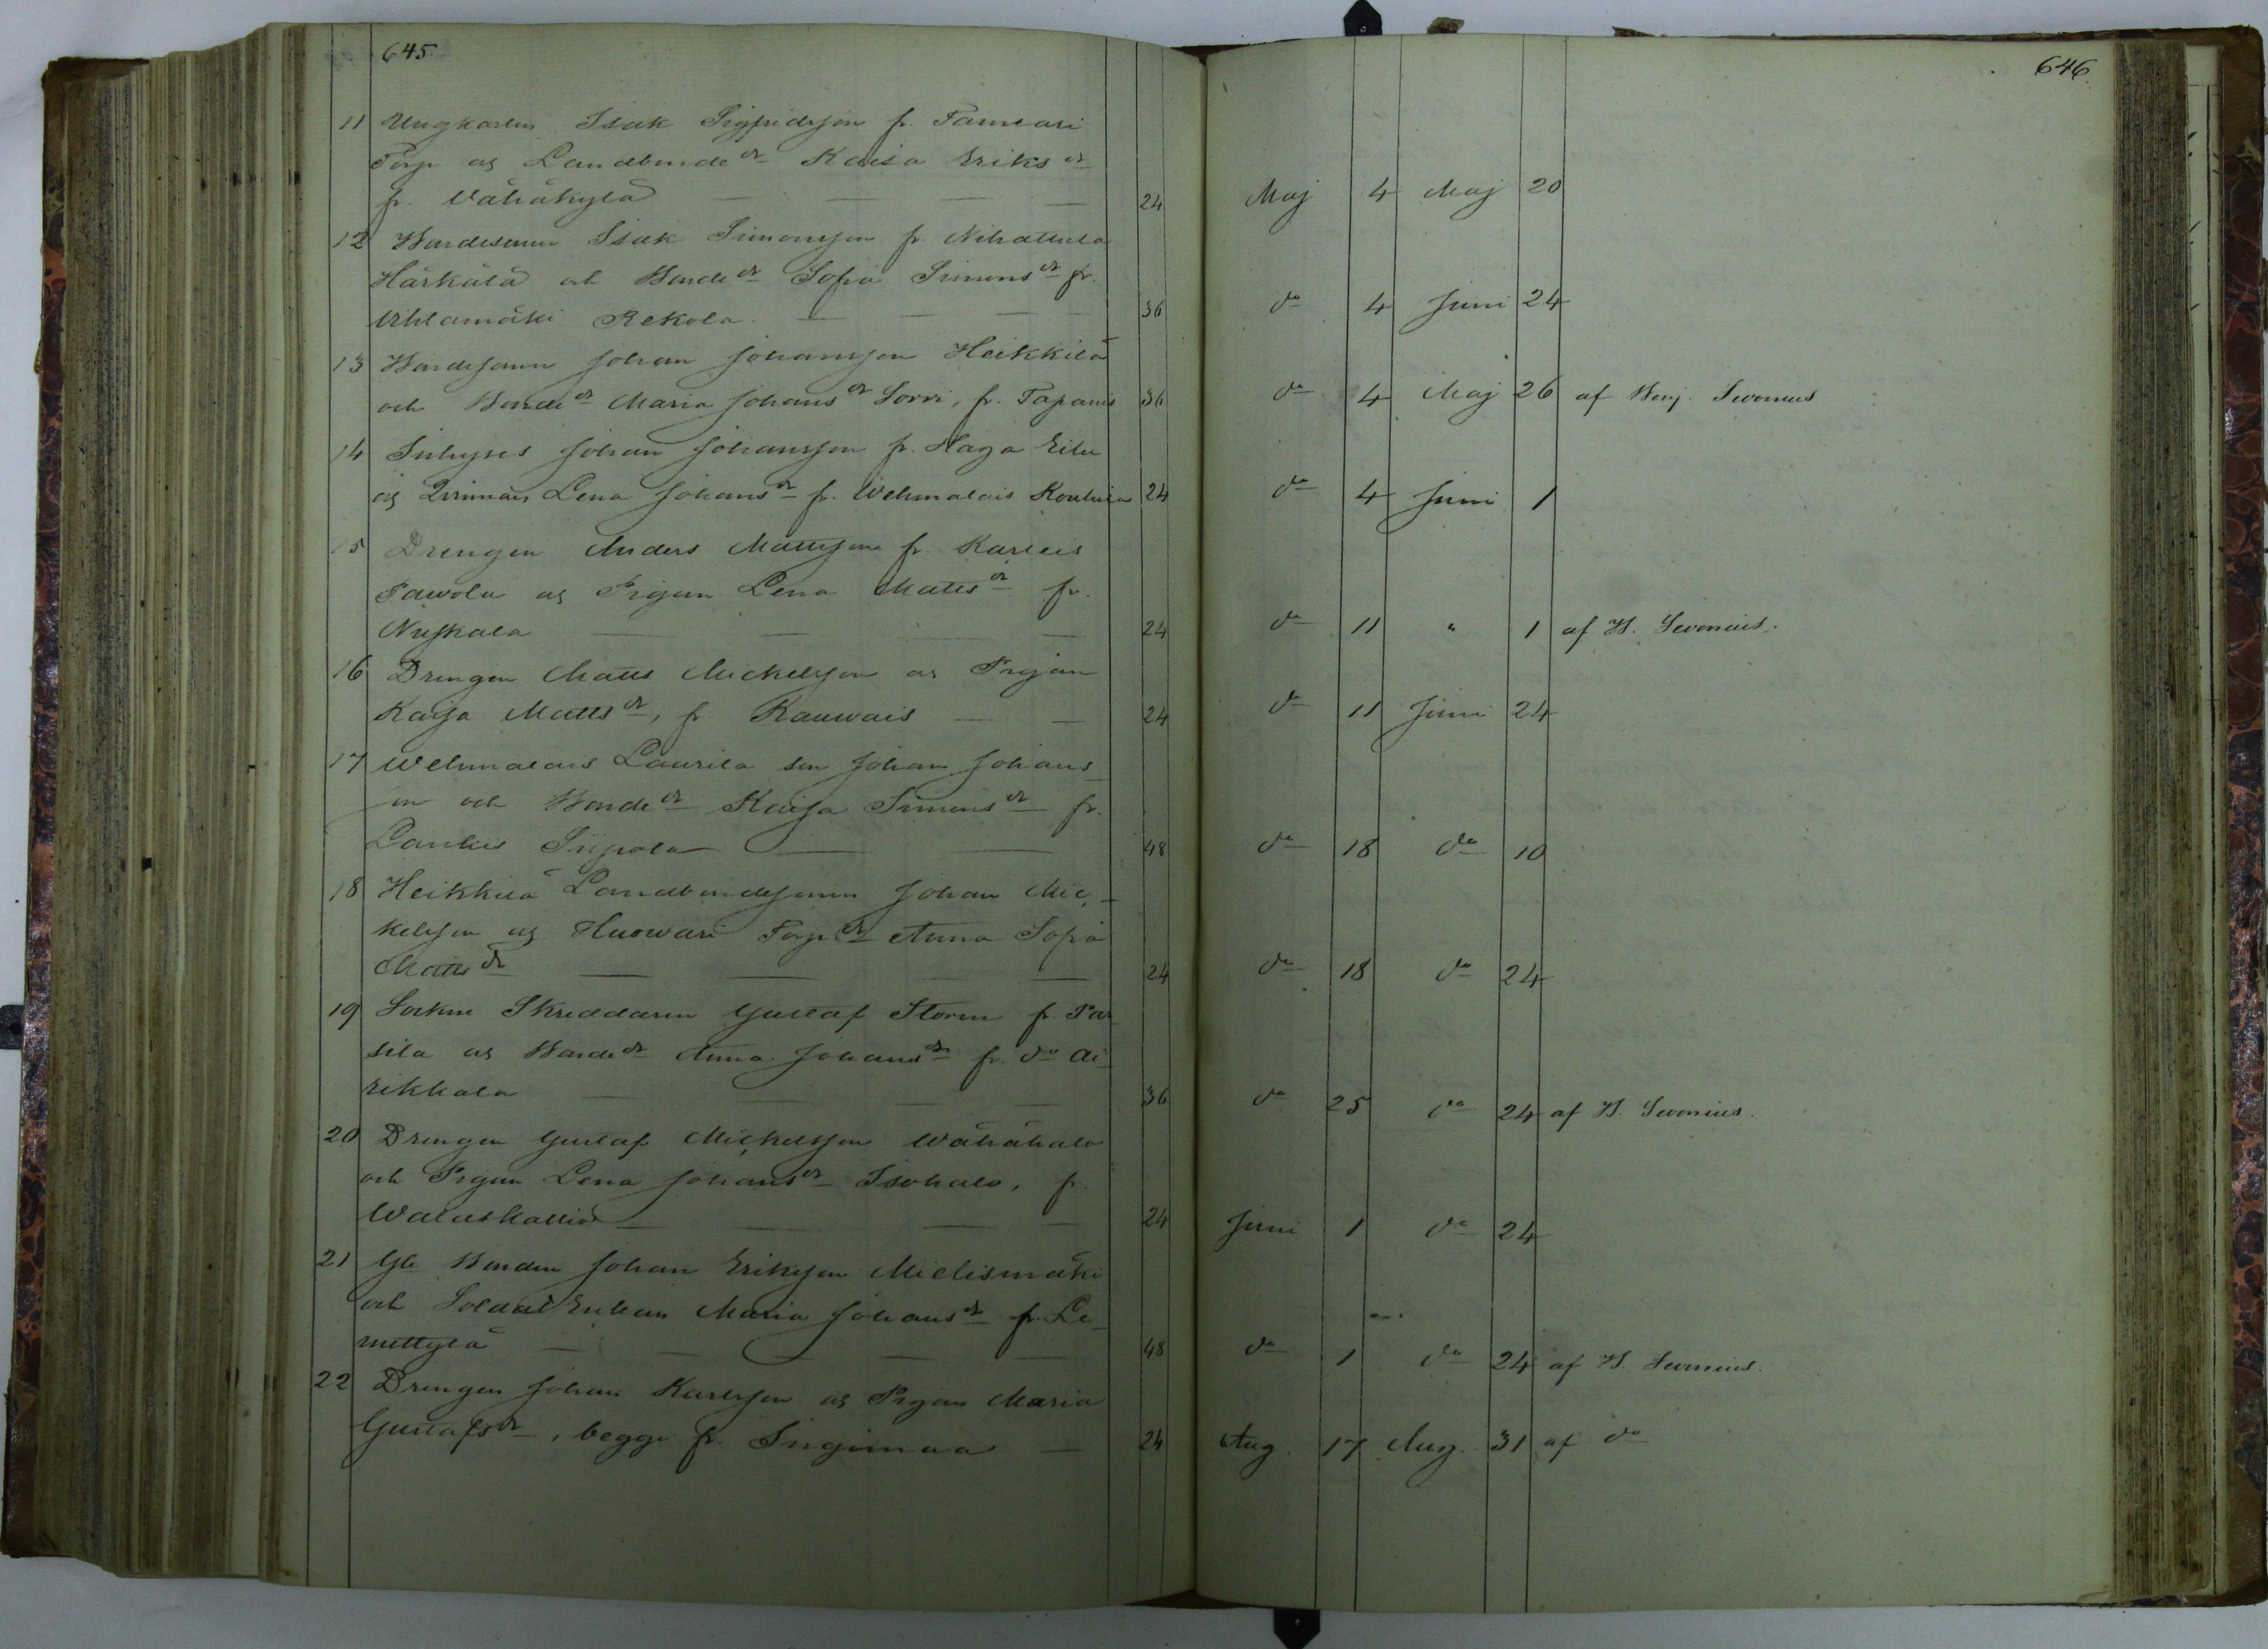 645
646
11 Ungkarlen Isak Sigfridsson fr. Tameari
Torp og Landbonde dr Kaisa Eriks dr
fr. Vähäkylä 24 Maj 4 Maj 20
12 Bondesonen Isak Simonsson fr. Nihattula
Härkälä och Bonde dr Sofia Simons dr fr.
Uhlamäki Rekola 36 do 4 Juni 24
13 Bondesonen Johan Johansson Heikkilä
och Bonde dr Maria Johans dr Sorri, fr. Tapanis 36 do 4 Maj 26 af Benj. Sevonius
14 Inhyses Johan Johansson fr. Haga Eilu
og Qvinnan Lena Johans dr fr. Wehmalais Kouhila 24 do 4 Juni 1
15 Drengen Anders Mattsson fr. Karleis
Pawola og Pigan Lena Matts dr fr.
Nuskala 24 do 11 " 1 af B. Sevonius.
16 Drengen Matts Mickelsson og Pigan
Kaisa Matts dr, fr. Rauwais 24 do 11 Juni 24
17 Wehmalais Laurila son Johan Johans
son och Bonde dr Kaisa Simons dr fr.
Lankis Siipola 48 do 18 do 10
18 Heikkilä Landbondesonen Johan Mic,
kelsson og Huowari Torp dr Anna Sofia
Matts dr 24 do 18 do 24
19 Sockne Skreddaren Gustaf Storm fr. Pas
sila og Bonde dr Anna Johans dr fr. do Ai
rikkala 36 do 25 do 24 af B. Sevonius.
20 Drengen Gustaf Mickelsson Wähähalo
och Pigan Lena Johans dr Isohalo, fr.
Walaskallio 24 Juni 1 do 24
21 Gle Bonden Johan Eriksson Mielismäki
och Soldat Enkan Maria Johans dr fr. Le
mettylä 48 do 1 do 24 af B. Sevonius.
22 Drengen Johan Karlsson og Pigan Maria
Gustafs dr, begge fr. Sugimaa 24 Aug. 17 Aug. 31 af do